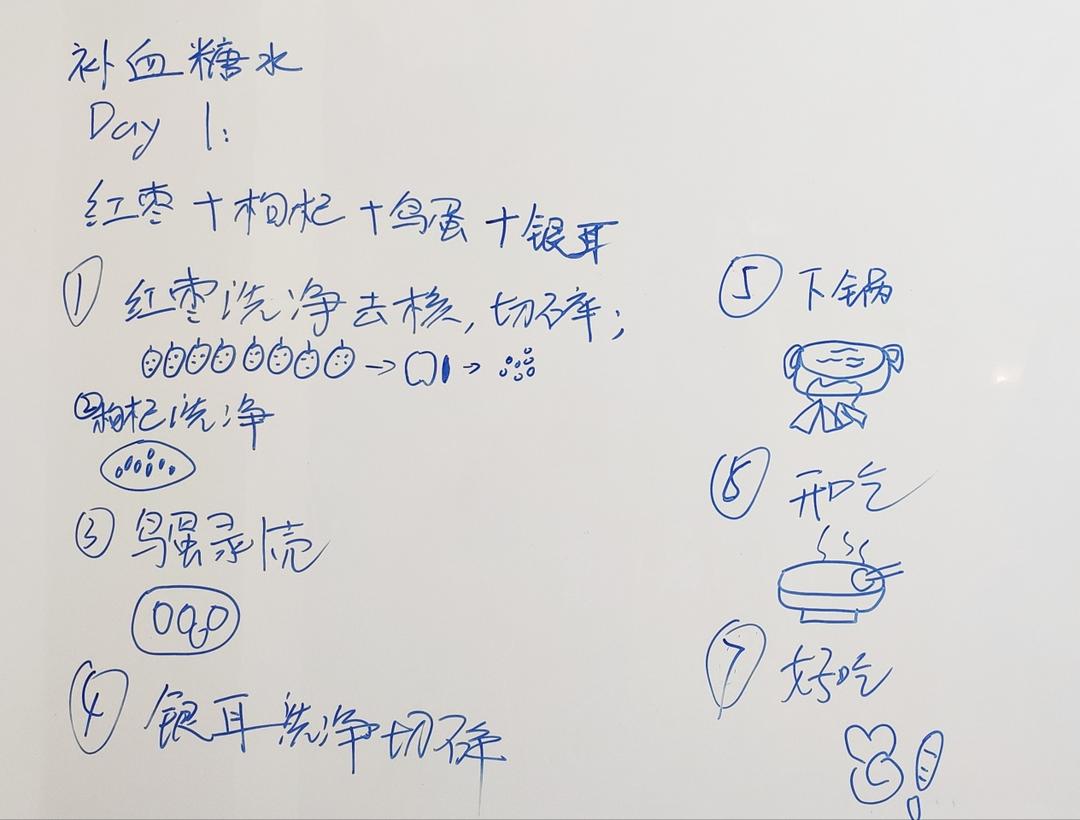 补血糖水
Day 1:
红枣+枸杞+鸟蛋+银耳
① 红枣洗净去核,切碎;
②枸杞洗净
③ 鸟蛋剥壳
④ 银耳洗净切碎
⑤ 下锅
⑥ 开吃
⑦ 好吃